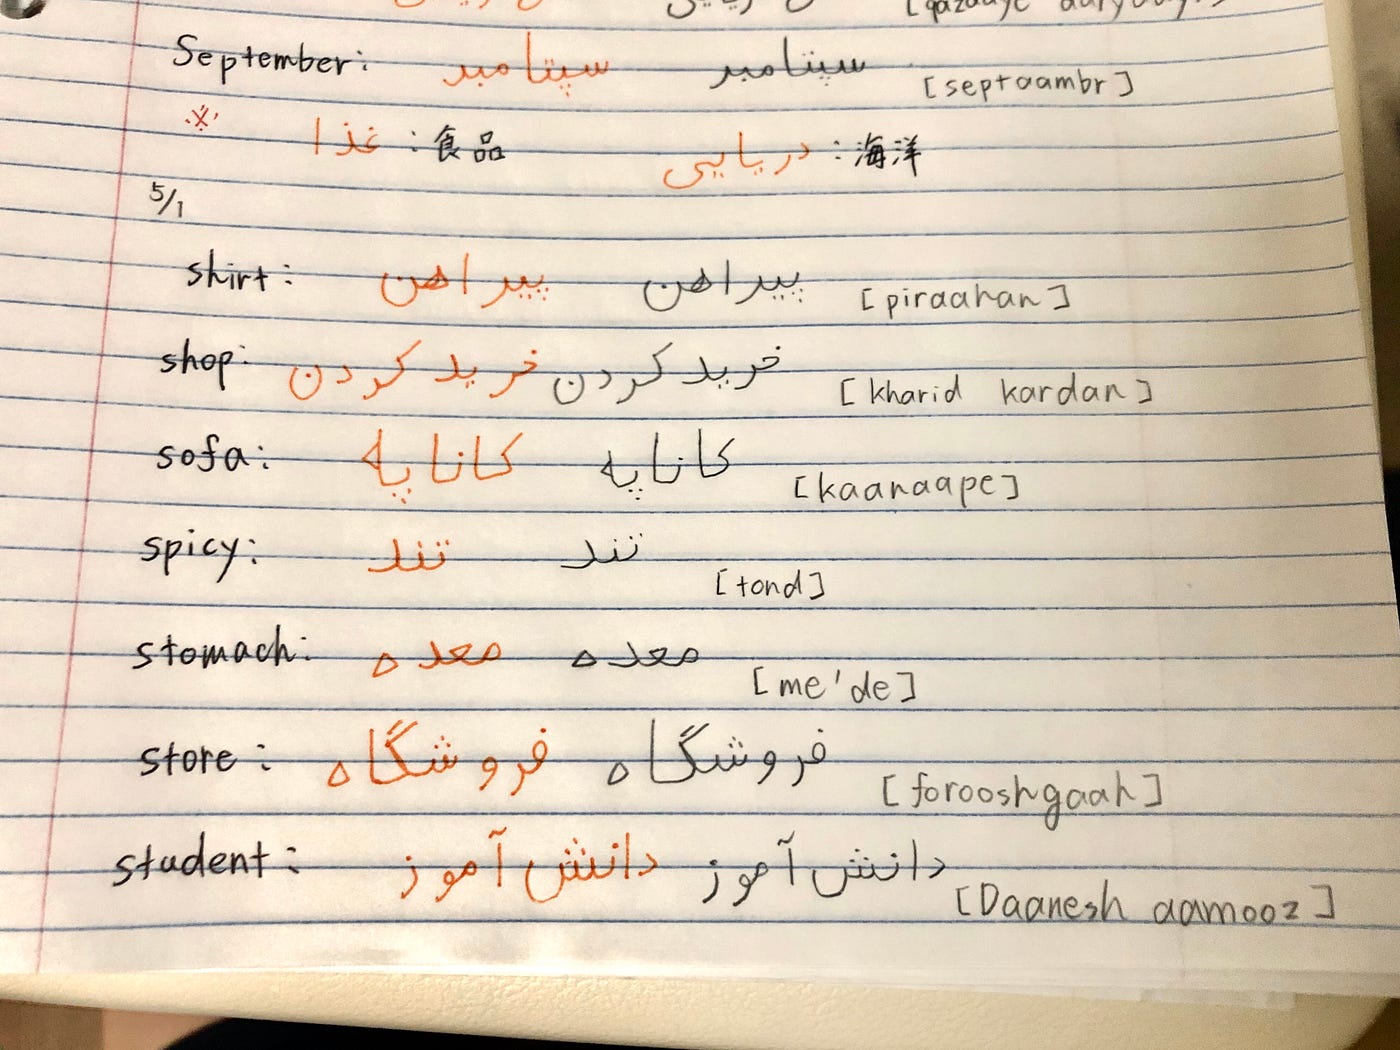 September: سپتامبر سپتامبر [septaambr]
※ غذا : 食品 دریایی : 海洋
5/1
shirt: پیراهن پیراهن [piraahan]
shop: خرید کردن خرید کردن [kharid kardan]
sofa: کاناپه کاناپه [kaanaape]
spicy: تند تند [tond]
stomach: معده معده [me'de]
store: فروشگاه فروشگاه [forooshgaah]
student: دانش آموز دانش آموز [Daanesh aamooz]